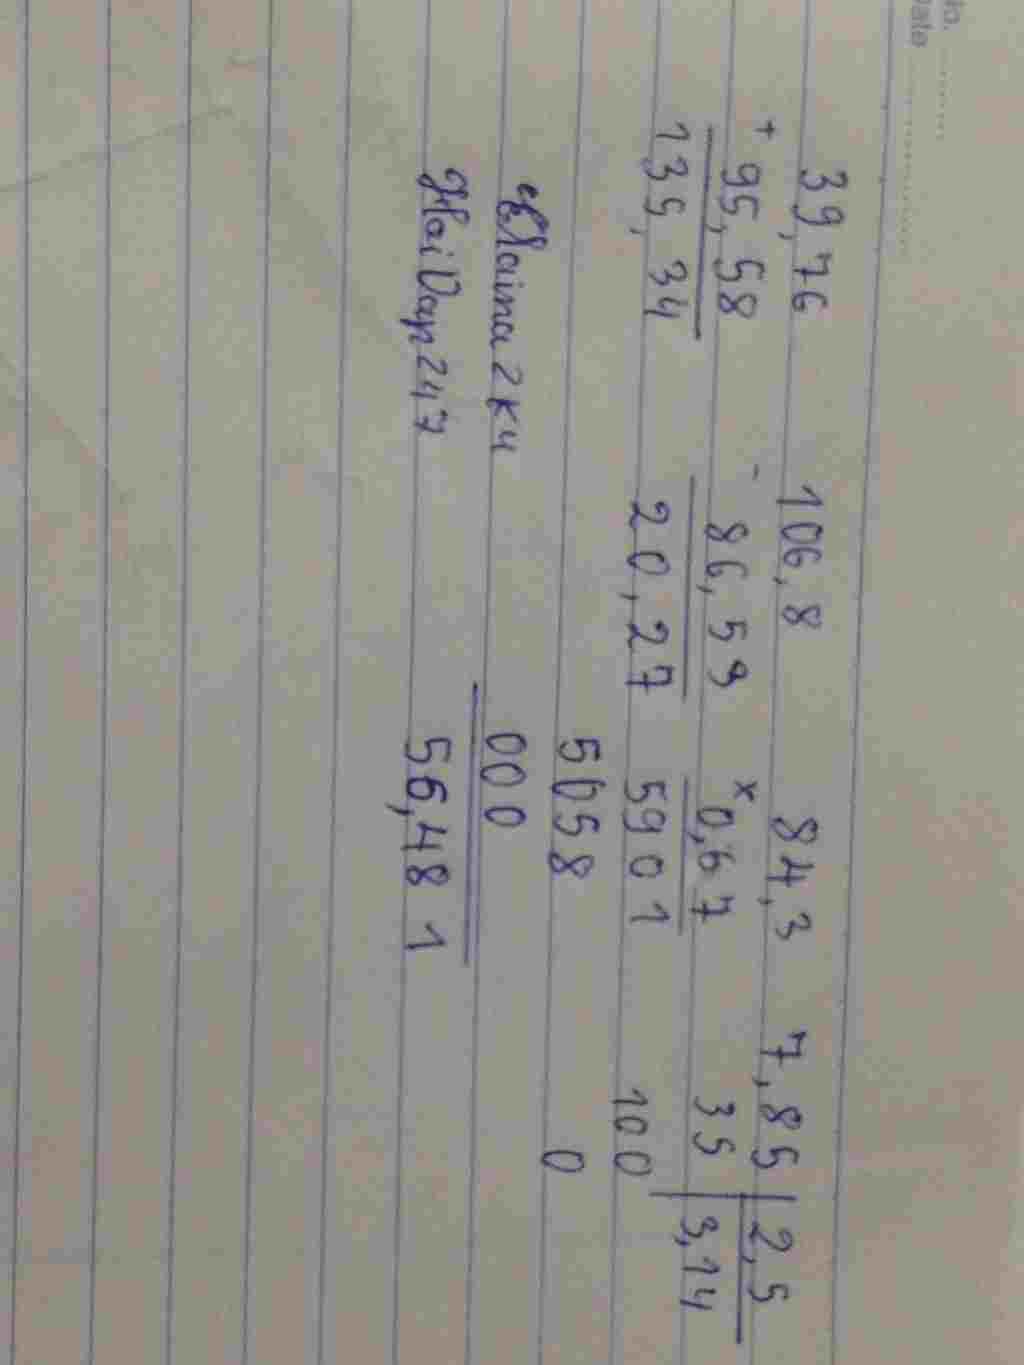 No. ............
Date ............
39,76 106,8 84,3 7,85 | 2,5
+ 95,58 - 86,59 x 0,67 35 | 3,14
135,34 20,27 5901 100
5058 0
Elaina2k4 000
HoiDap247 56,481